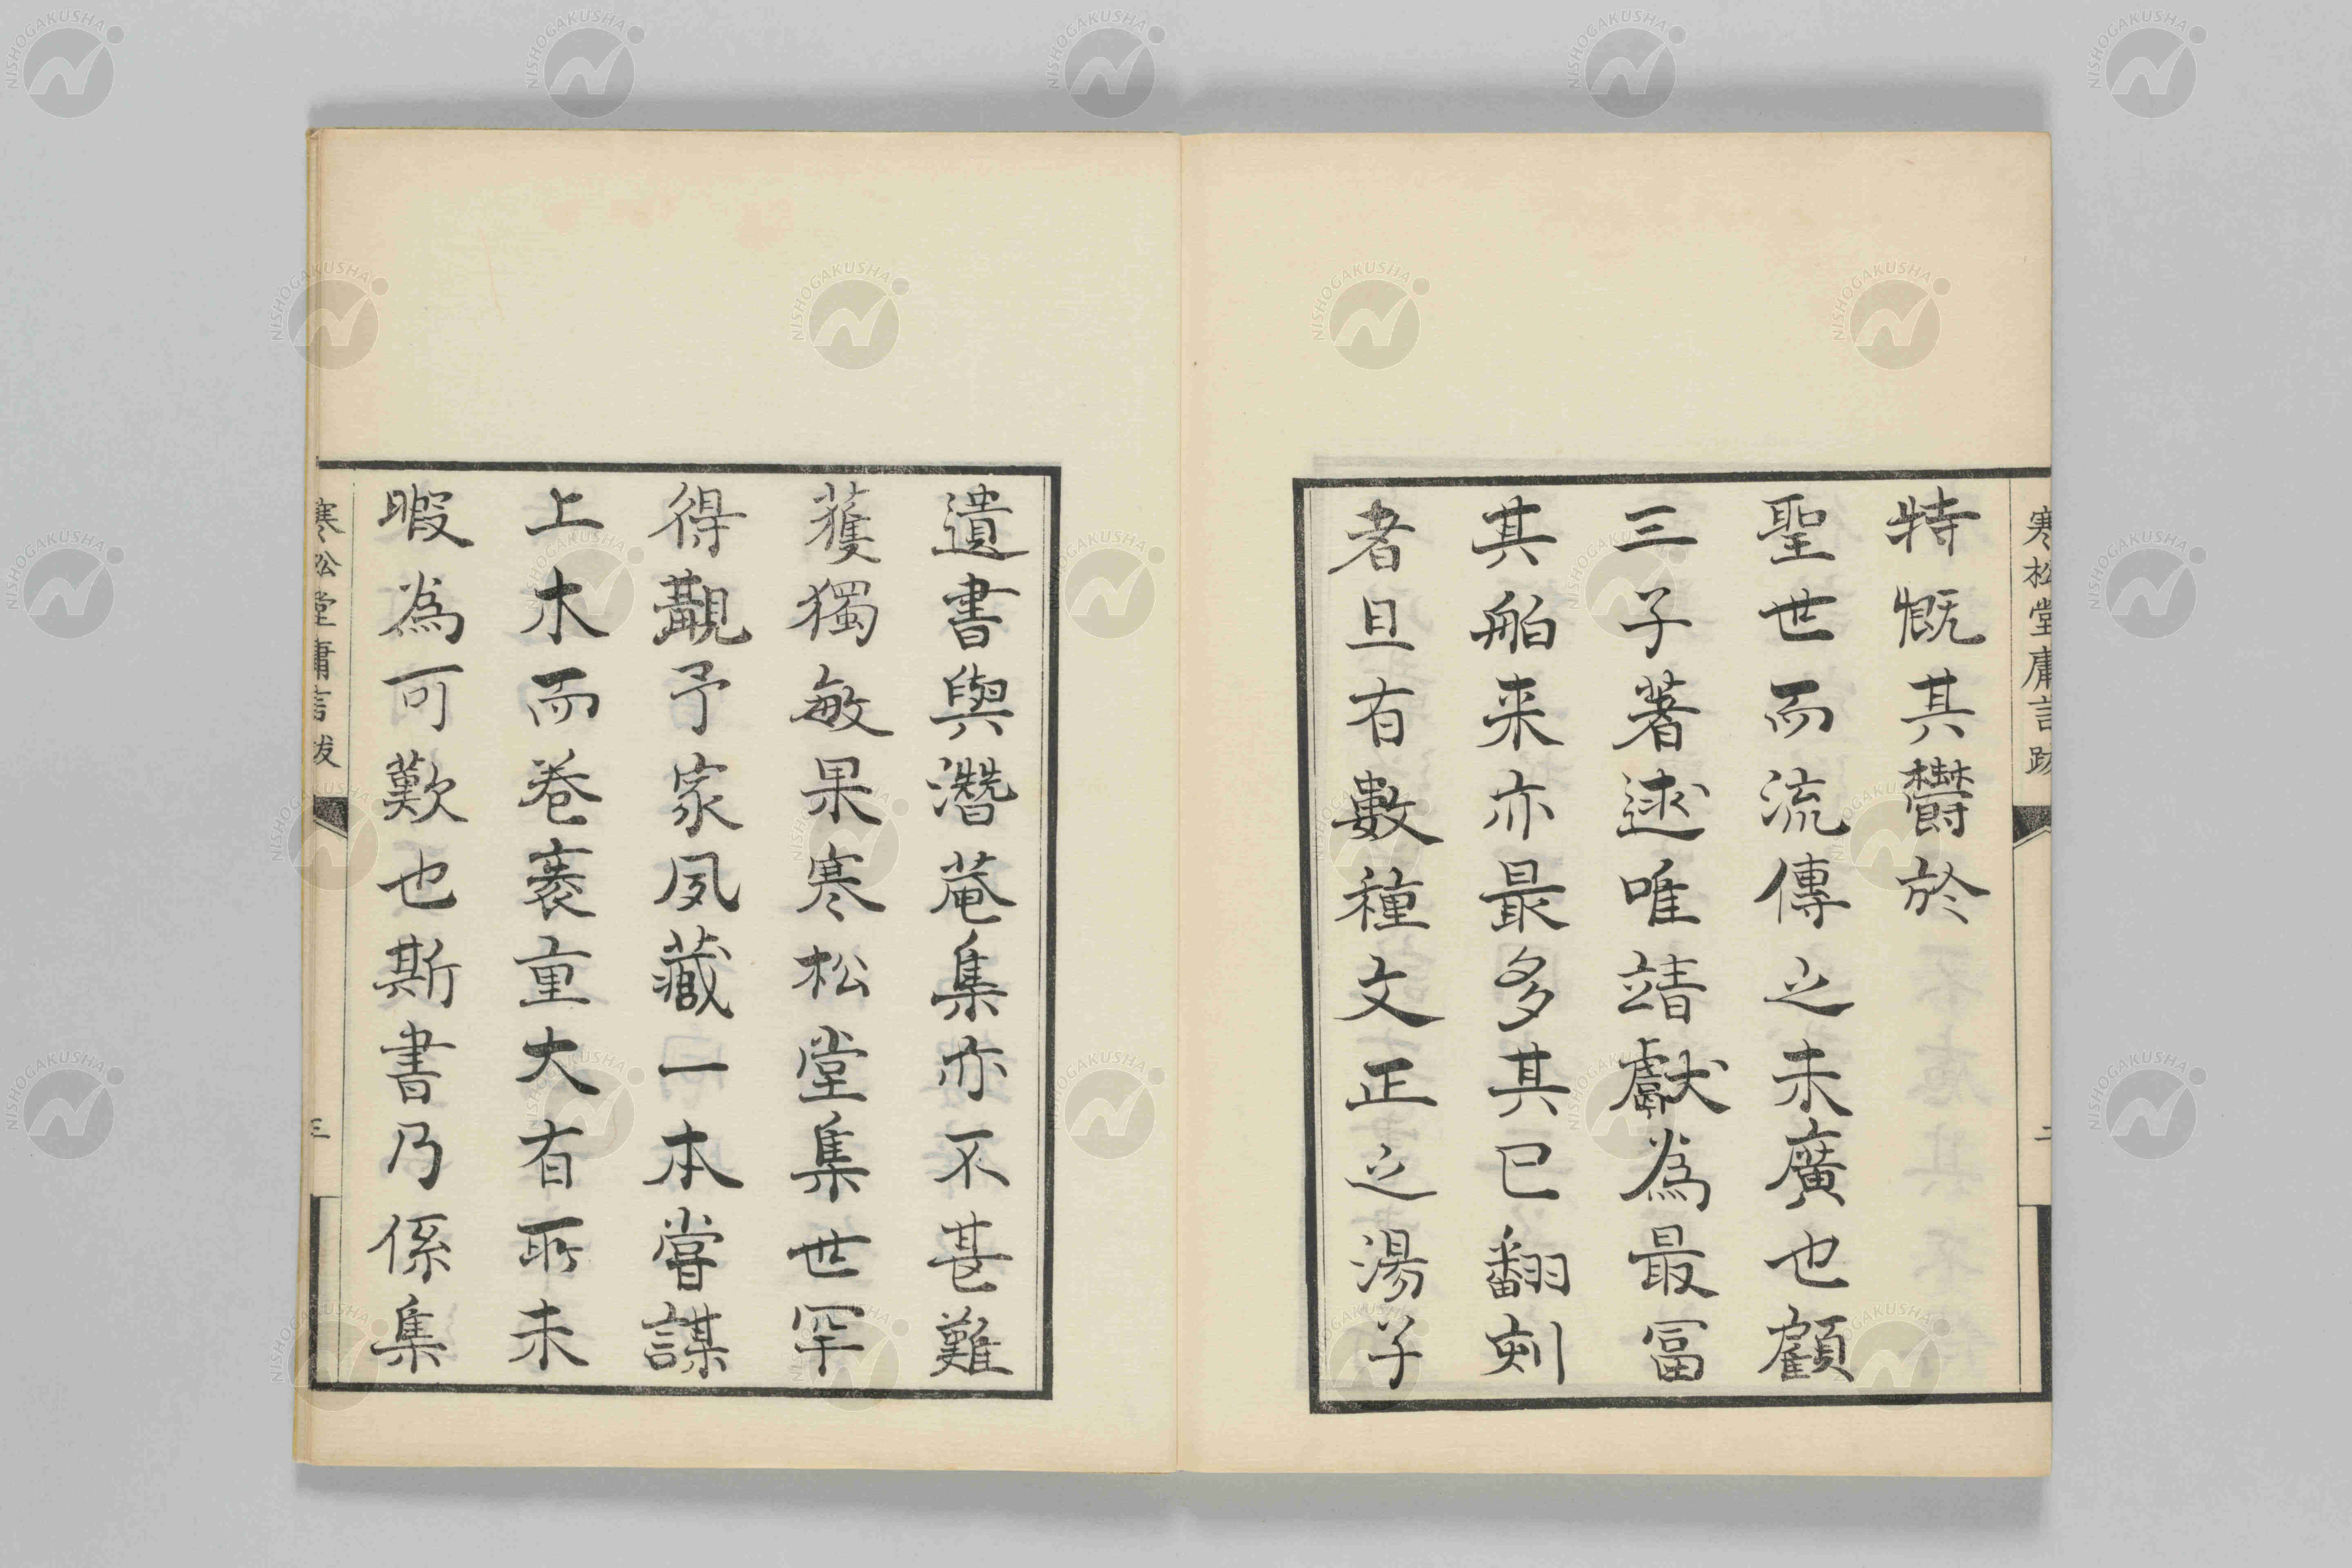 寒松堂庸言跋
二
特慨其欝於
聖世而流傳之未廣也顧
三子著述唯靖獻爲最富
其舶来亦最多其已翻刻
者且有數種文正之湯子
遺書與潛菴集亦不甚難
獲獨敏果寒松堂集世罕
得覯予家夙藏一本嘗謀
上木而卷袠重大有所未
暇爲可歎也斯書乃係集
寒松堂庸言跋
三
NISHOGAKUSHA